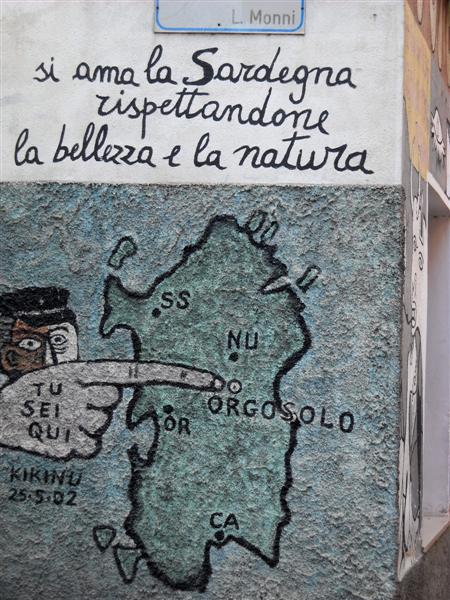 L. Monni
si ama la Sardegna
rispettandone
la bellezza e la natura
SS
NU
TU
SEI
QUI
ORGOSOLO
OR
KIKINU
25-5-02
CA